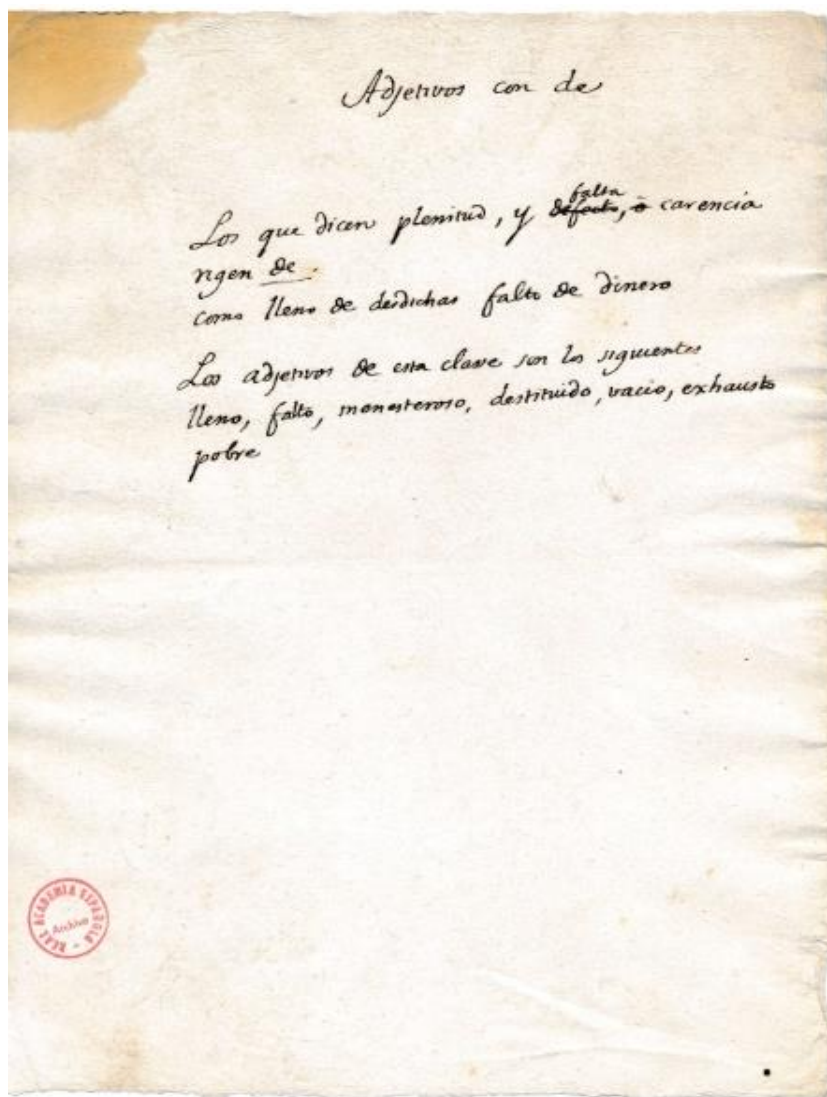 Adjetivos con de
Los que dicen plenitud, y falta defecto, ò carencia
rigen de.
como lleno de desdichas falto de dinero
Los adjetivos de esta clase son los siguientes
lleno, falto, menesteroso, destituido, vacio, exhausto
pobre
REAL ACADEMIA ESPAÑOLA
Archivo